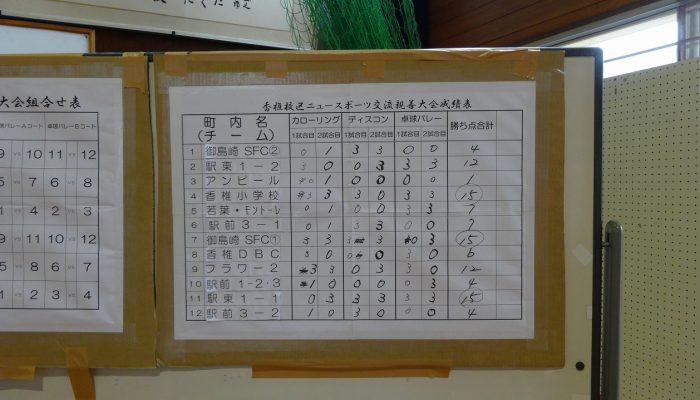 大会組合せ表
卓球バレーAコート 卓球バレーBコート
9 VS 10 11 VS 12
5 VS 7 6 VS 8
1 VS 4 2 VS 3
香椎校区ニュースポーツ交流親善大会成績表
町内名 (チーム) カローリング ディスコン 卓球バレー 勝ち点合計
1試合目 2試合目 1試合目 2試合目 1試合目 2試合目
1 御島崎 SFC② 0 1 3 3 0 0 4
2 駅東1－2 3 0 0 3 3 3 12
3 アンピール 0 1 0 0 0 0 1
4 香椎小学校 3 3 3 0 3 3 15
5 若葉・モントーレ 0 1 0 0 3 3 7
6 駅前3－1 0 1 3 3 0 0 7
7 御島崎 SFC① 3 3 3 0 3 15
8 香椎DBC 3 0 0 0 3 0 6
9 フラワー2 3 3 0 3 3 0 12
10 駅前1-2・3 1 0 0 0 0 3 4
11 駅東1－1 0 3 3 3 3 3 15
12 駅前3－2 1 0 3 0 0 0 4